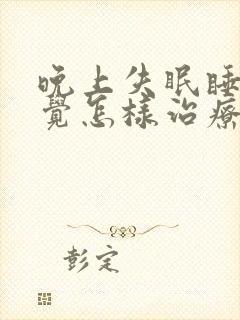 晚上失眠睡
覺怎樣治療
彭定